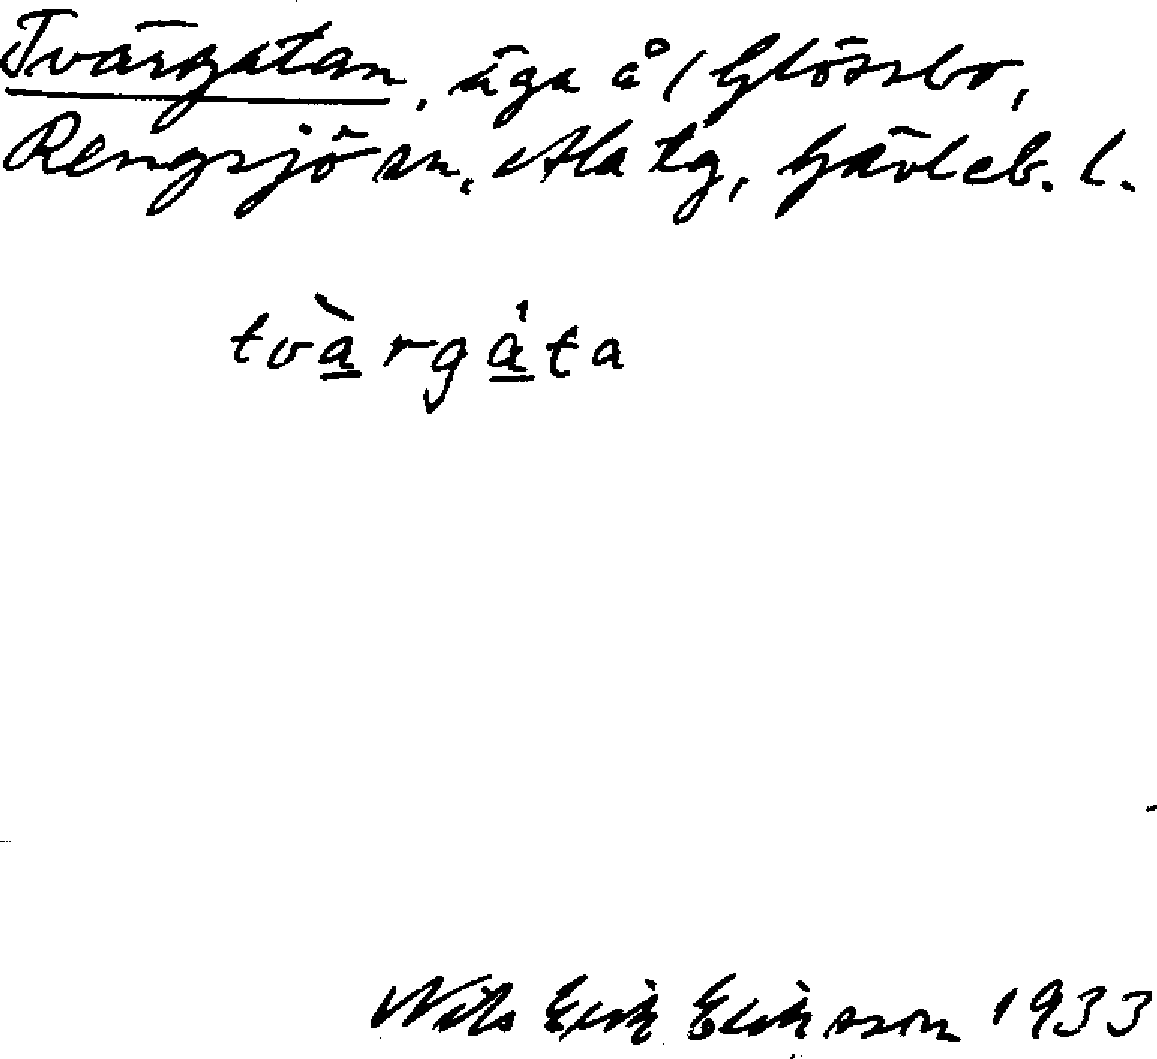 Tvärgatan, äga å / Glössbo,
Rengsjö sn, Ala tg, Gävleb. l.
tvàrgáta
Nils Erik Eriksson 1933